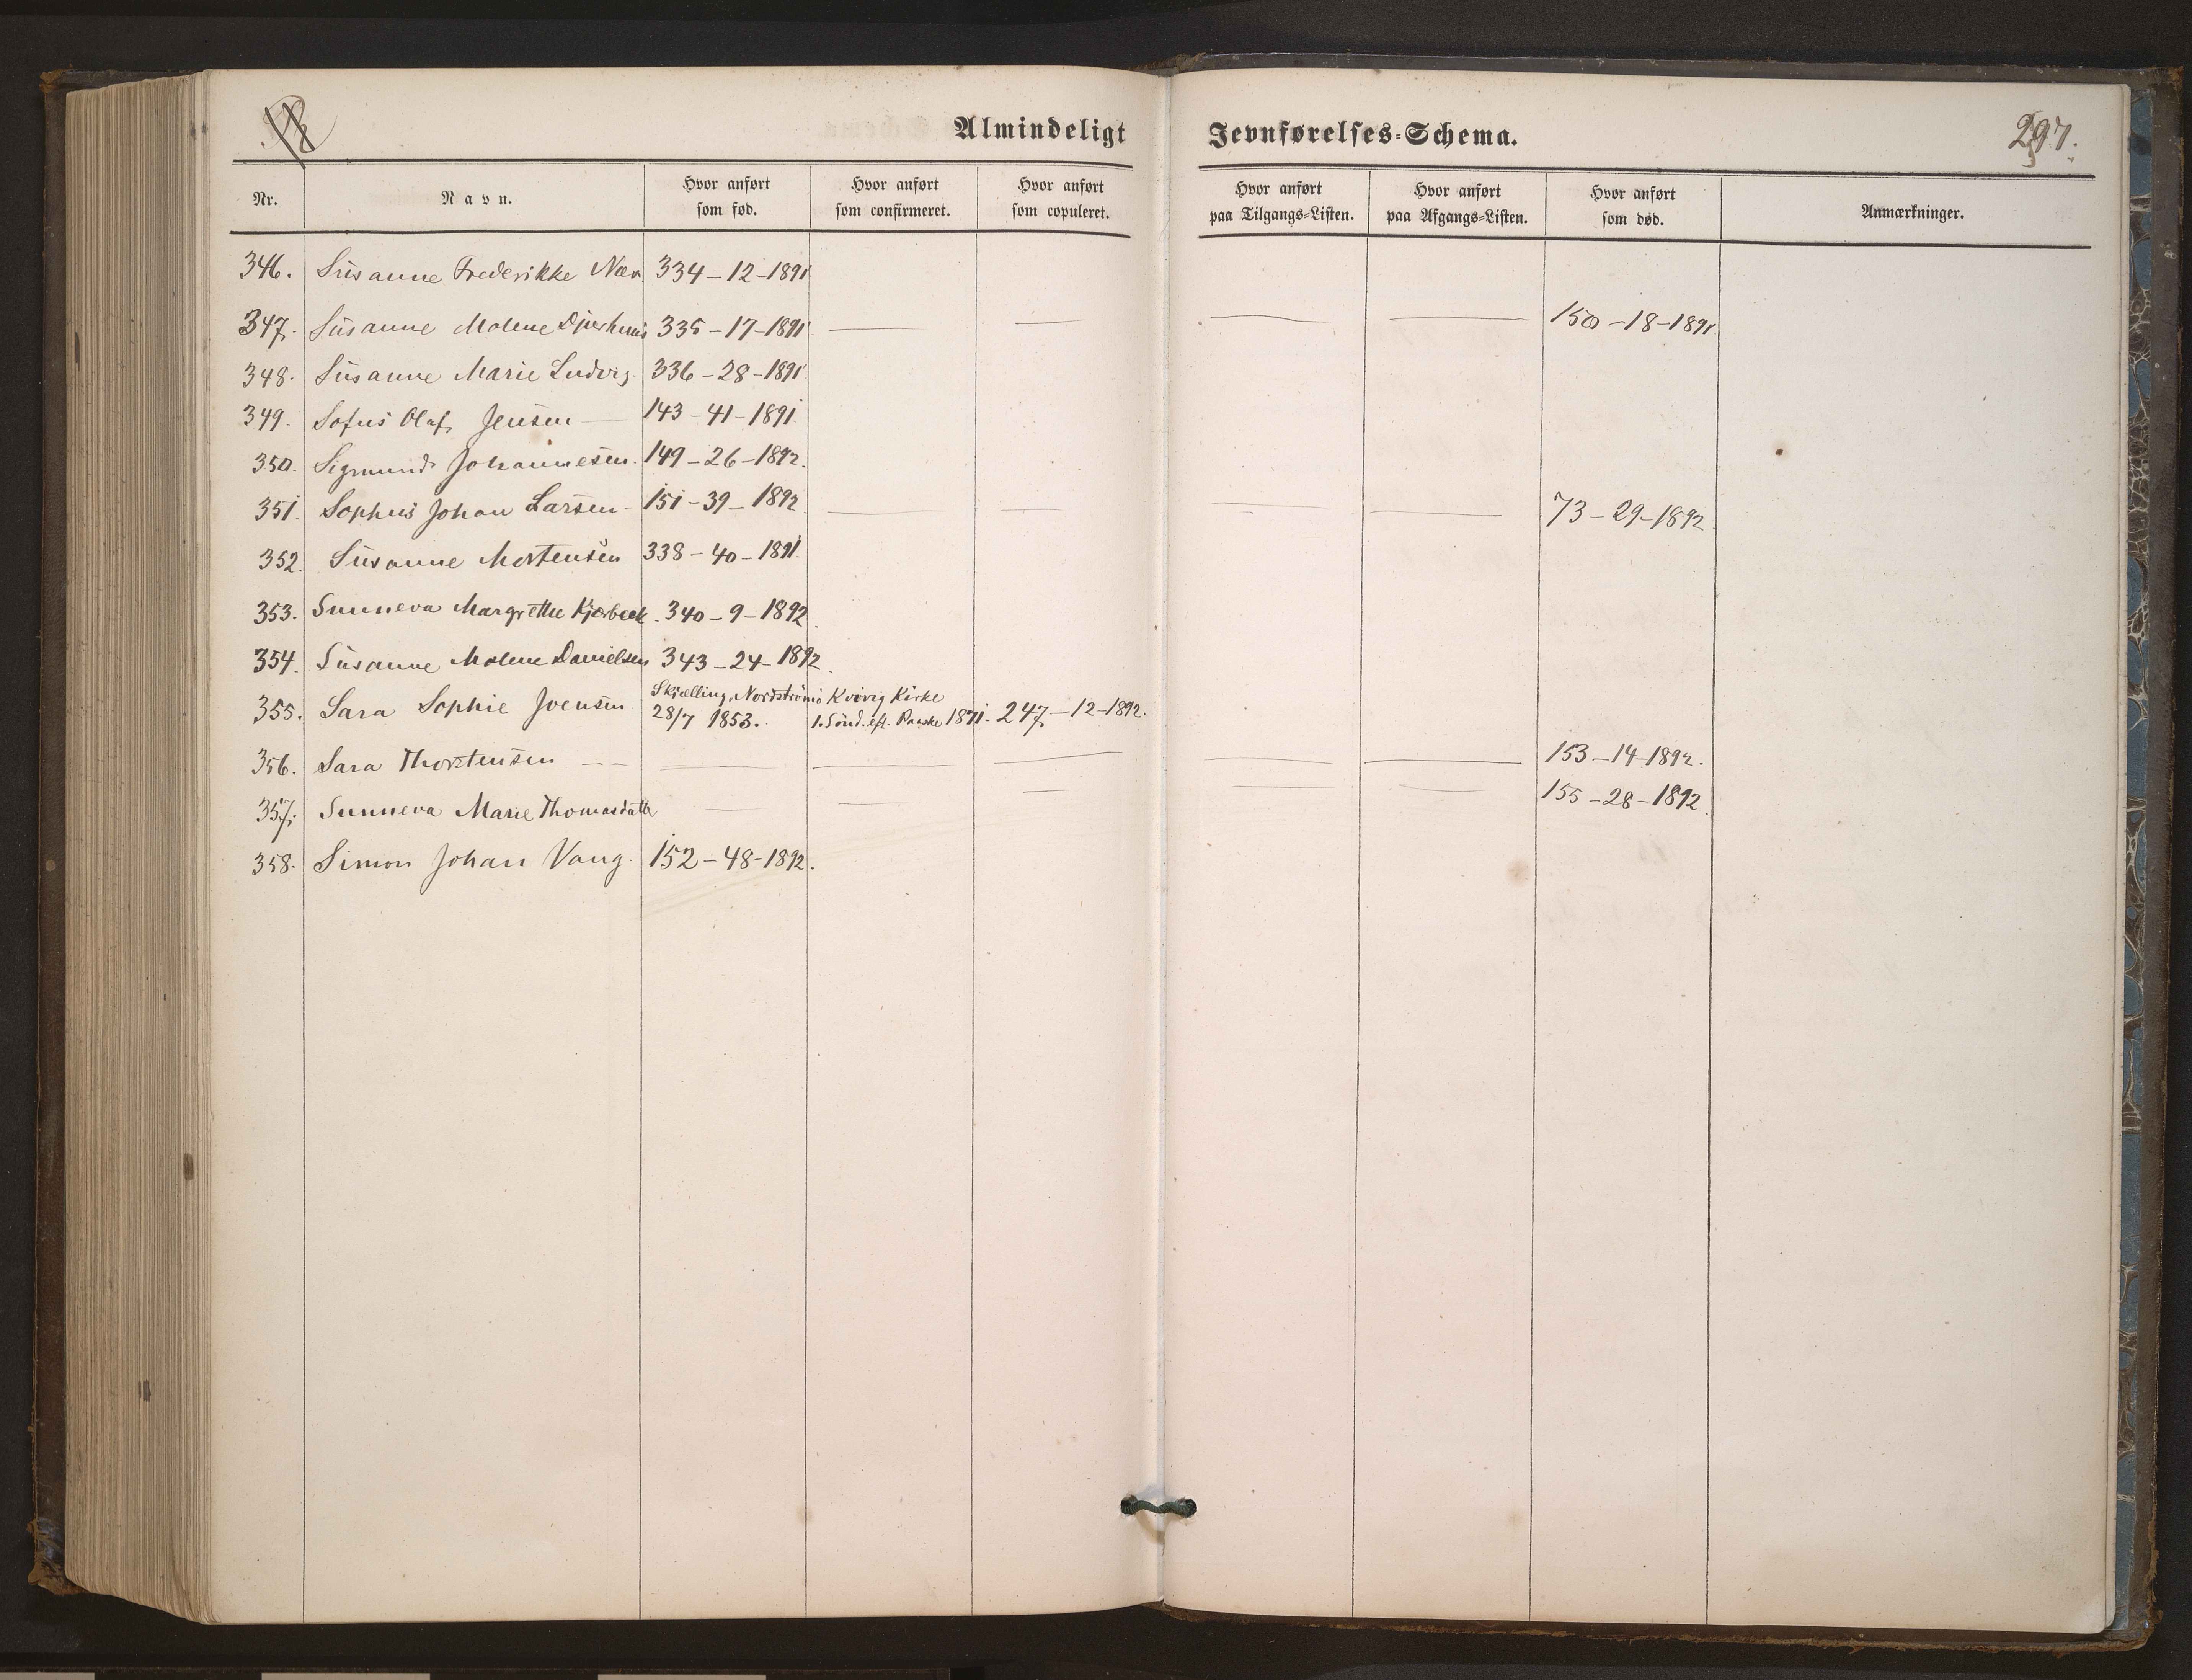 Almindeligt Jevnførelses-Schema.
297.
Nr. Navn. Hvor anført som fød. Hvor anført som confirmeret. Hvor anført som copuleret. Hvor anført paa Tilgangs-Listen. Hvor anført paa Afgangs-Listen. Hvor anført som død. Anmærkninger.
346. Susanne Frederikke 334-12-1891
347. Susanne Malene Djurhuus 335-17-1891 — — — — 150-18-1891
348. Susanne Marie Ludvig. 336-28-1891
349. Sofus Olaf Jensen — 143-41-1891
350. Sigmund Johannesen. 149-26-1892.
351. Sophus Johan Larsen - 151-39-1892 — — — — 73-29-1892
352. Susanne Mortensen 338-40-1891.
353. Sunneva Margrethe Kjærbæk. 340-9-1892.
354. Susanne Malene Danielsen 343-24-1892.
355. Sara Sophie Joensen Skjælling, Nordströmö Kvivig Kirke
28/7 1853. 1. Sönd. eft. Paaske 1871. 247-12-1892.
356. Sara Thorstensen — — — — — — 153-14-1892.
357. Sunneva Marie Thomasdatter — — — — — 155-28-1892.
358. Simon Johan Vang. 152-48-1892.